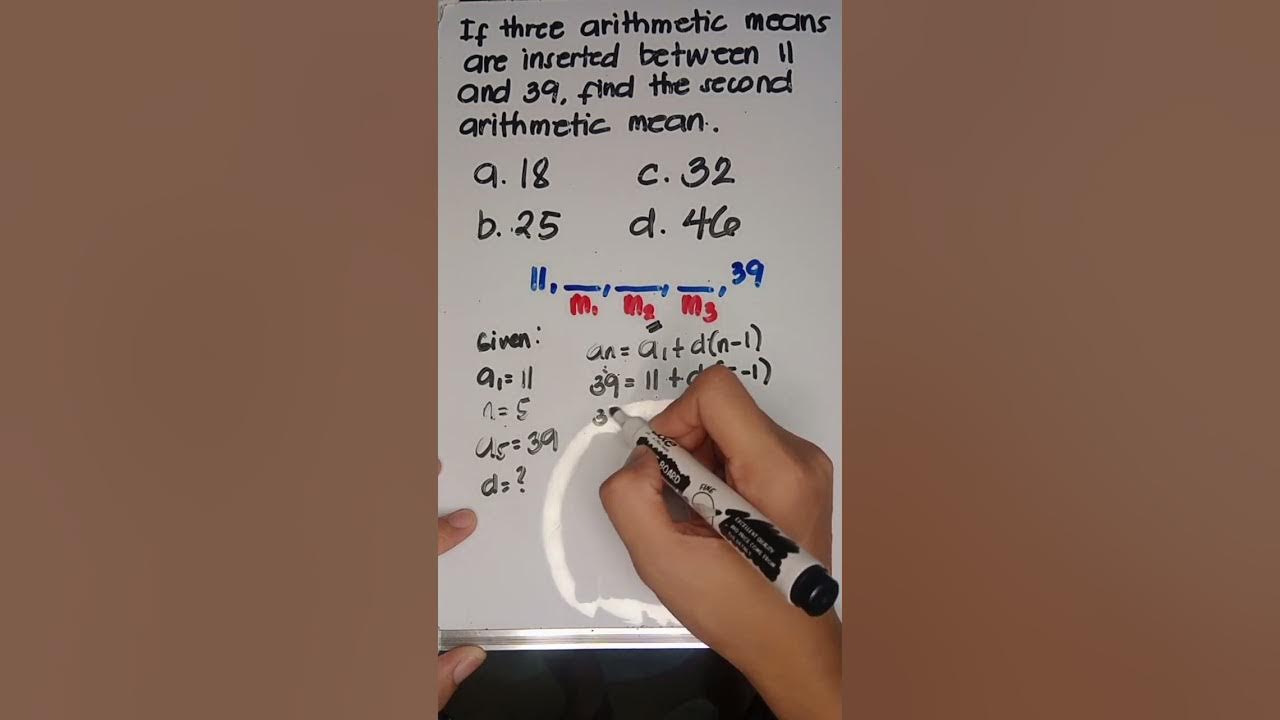 If three arithmetic means
are inserted between 11
and 39, find the second
arithmetic mean.
a. 18 c. 32
b. 25 d. 46
11, __, __, __, 39
m₁ m₂ m₃
Given:
a₁ = 11
n = 5
a₅ = 39
d = ?
an = a₁ + d(n-1)
39 = 11 + d( -1)
3
BOARD
FINE
EXCELLENT QUALITY